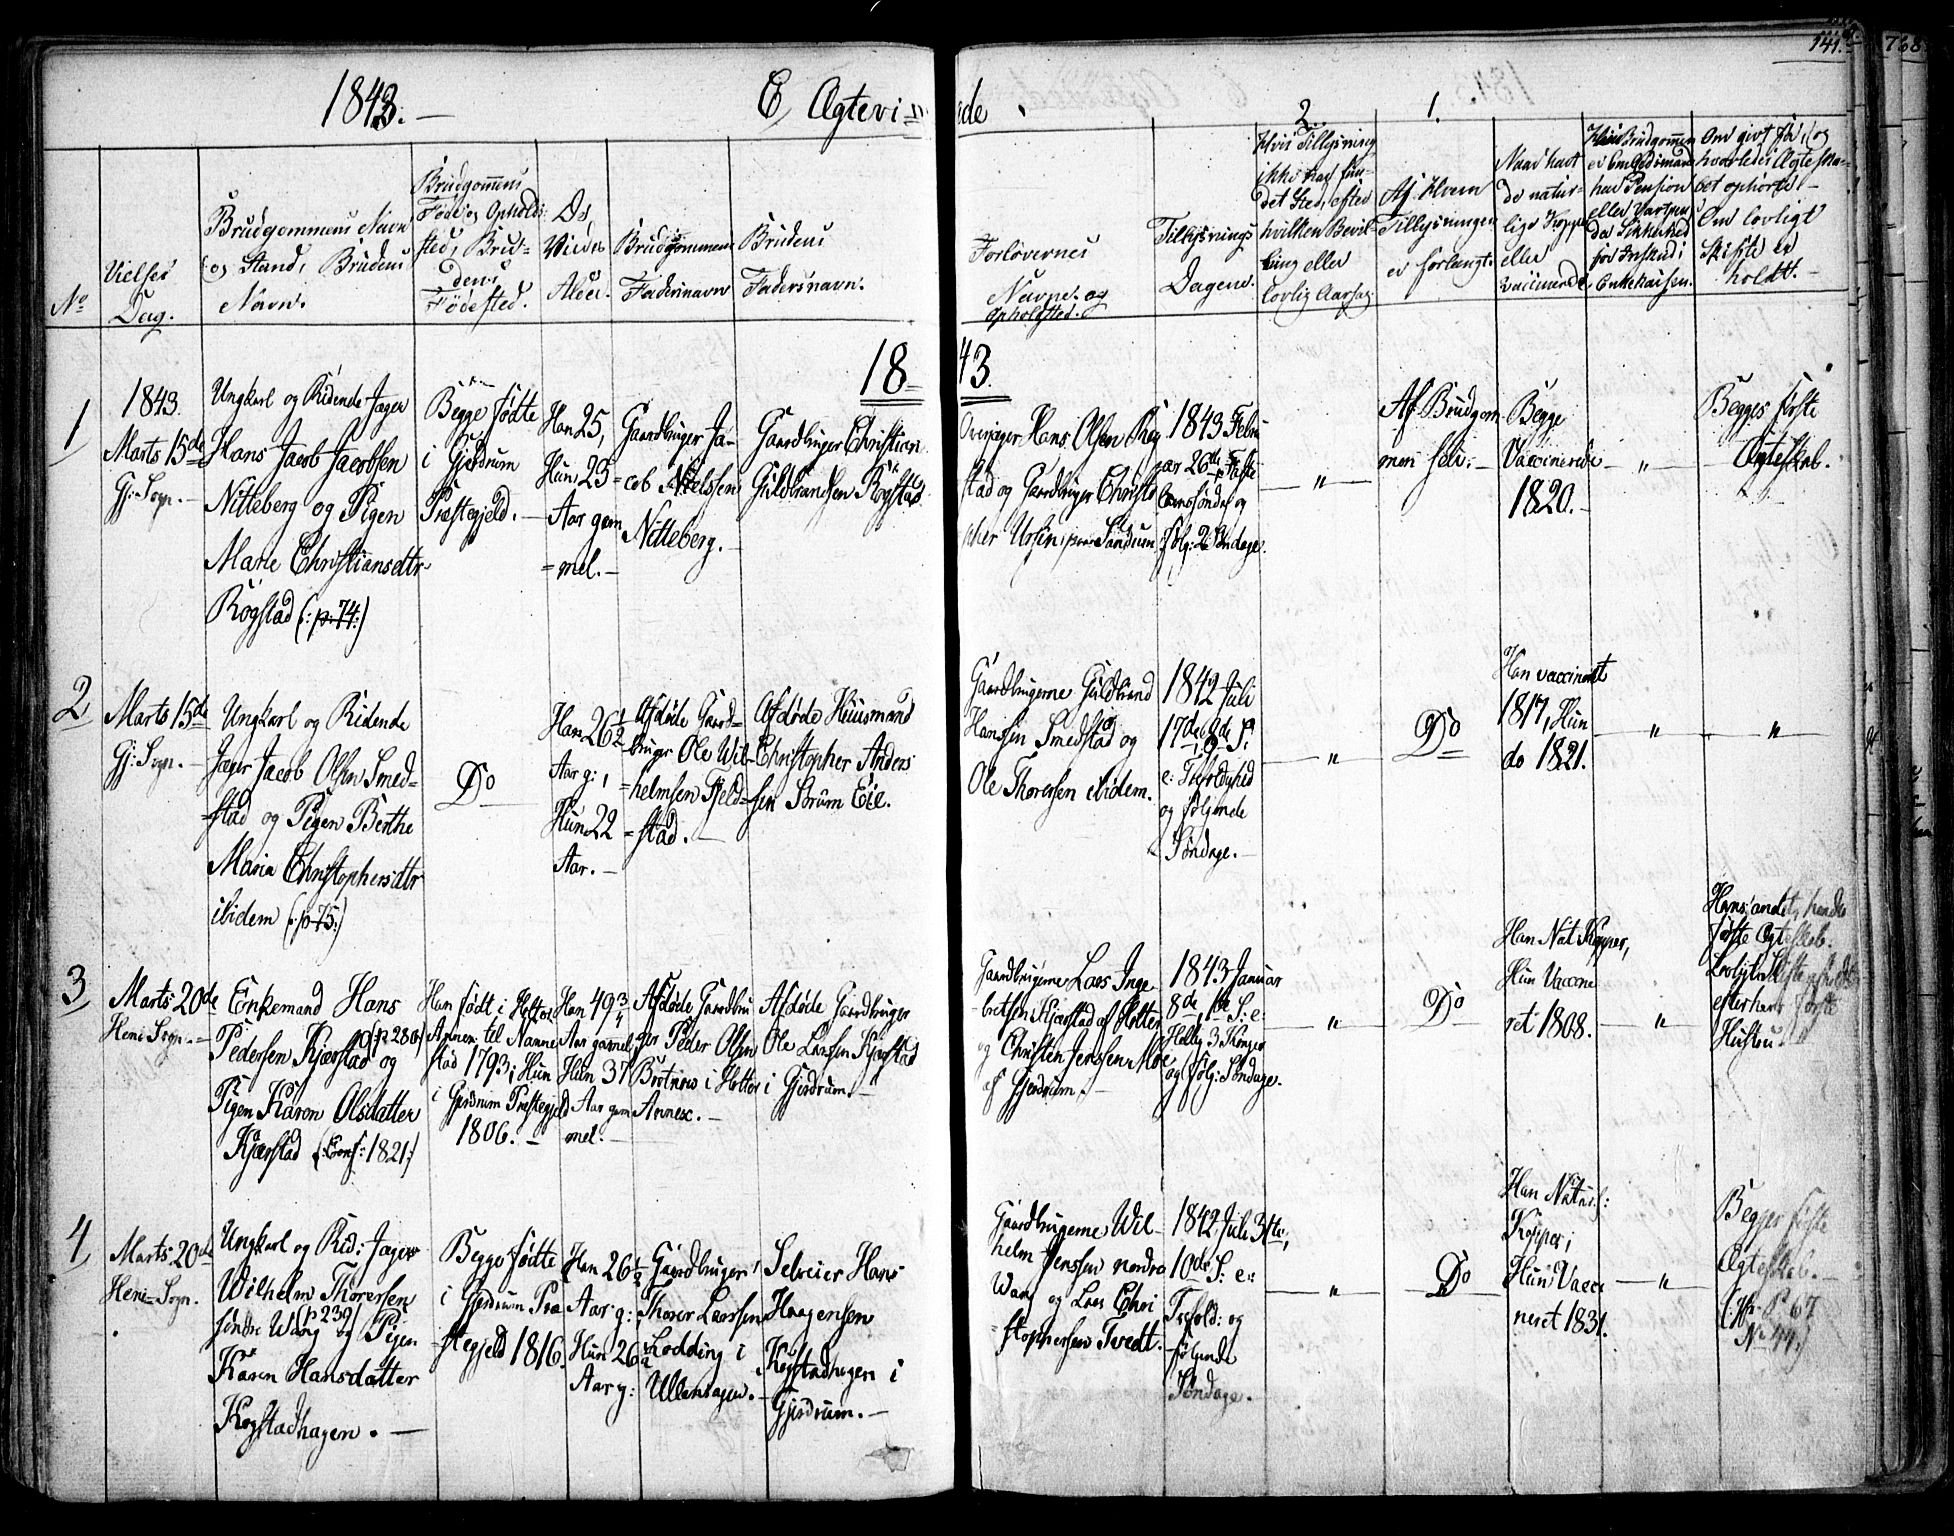 1843.
E, Ægtevi-
ede
141.
768
No
Vielses
Dag.
Brudgommens Navn
og Stand, Brudens
Navn.
Brudgommens
Føde og Opholds-
sted, Bru-
dens
Fødested.
De
Viedes
Alder.
Brudgommens
Fadersnavn
Brudens
Fadersnavn.
Forloverenes
Navne og
Opholdsted.
Tillysnings
Dagene.
2.
Hvis Tillysning
ikke har fun-
det Sted, efter
hvilken Bevil-
ling eller
lovlig Aarsag
1.
Af Hvem
Tillysningen
er forlangt.
Naar havt
de natur-
lige Kopper
eller
vaccinerede
Hvis Brudgommen
er Embedsmand
har Pension
eller
for Indskud i
Enkekassen.
Om givt før, og
hvorledes Ægteska-
bet ophørte.
Om lovligt
Skifte er
holdt.
18=
43.
1,
1843.
Marts 15de
Gj: Sogn.
Ungkarl og Ridende Jæger
Hans Jacob Jacobsen
Nitteberg og Pigen
Marie Christiansdtr
Rogstad (: p: 74:)
Begge fødte
i Gjerdrum
Præstegjeld.
Han 25,
Hun 25
Aar gam
=mel.
Gaardbruger Ja-
=cob Nielssen
Nitteberg.
Gaardbruger Christian
Guldbrandsen Rogstad
Overjæger Hans Olsen Rog
stad og Gaardbruger Christo
pher Ursin Sandum
1843 Febru
ar 26de Faste
lavnssøndag og
følg: 2 Søndage.
"
Af Brudgom
men selv.
Begge
Vaccinerede
1820.
"
Begges første
Ægteskab.
2,
Marts 15de
Gj: Sogn.
Ungkarl og Ridende
Jæger Jacob Olsen Smed-
=stad og Pigen Berthe
Maria Christophersdtr
ibidem (: p 75:)
Do
Han 26½
Aar g:,
Hun 22
Aar.
Afdøde Gaard-
bruger Ole Wil-
=helmsen Fjeld-
=stad.
Afdøde Huusmand
Christopher Anders
sen Sørum Eie.
Gaardbrugerne Guldbrand
Hanssen Smedstad og
Ole Thorersen ibidem.
1842 Juli
17de, 8de S:
e: Trefoldighed
og følgende
Søndage.
"
Do
Han vaccineret
1817, Hun
do 1821.
"
"
3,
Marts 20de
Heni Sogn.
Enkemand Hans
Pedersen Kjærstad (p 280) og
Pigen Karen Olsdatter
Kjærstad (: Conf: 1821:)
Han født i Holter
Annex til Nanne
stad 1793; Hun
i Gjerdrum Præstegjeld
1806.
Han 49¾
Aar gamel;
Hun 37
Aar gam
mel.
Afdøde Gaardbru
ger Peder Olsen
Brotnes i Holter
Annex.
Afdøde Gaardbruger
Ole Larssen Kjærstad
i Gjerdrum.
Gaardbrugerne Lars Inge
bretsen Kjærstad af Holter
og Christen Jenssen Moe
af Gjerdrum.
1843 Januar
8de, 1ste S: e:
Hellig 3 Konger
og følg: Søndage.
"
Do
Han Nat Kopper,
Hun Vaccine
ret 1808.
"
Hans andet, hendes
første Ægteskab.
Lovligt Skifte afholdt
efter hans første
Hustru.
4,
Marts 20de
Heni Sogn.
Ungkarl og Rid: Jæger
Wilhelm Thorersen
søndre Wang (p 239) og Pigen
Karen Hansdatter
Kogstadhagen.
Begge fødte
i Gjerdrum Præ
stegjeld 1816.
Han 26½
Aar g:
Hun 26½
Aar g:
Gaardbruger
Thorer Larssen
Lodding i
Ullensager.
Selveier Hans
Haagensen
Kogstadhagen i
Gjerdrum.
Gaardbrugerne Wil-
helm Jenssen nordre
Wang og Lars Chri
=stophersen Tvedt.
1842 Juli 31te,
10de S: e:
Trefold: og
følgende
Søndage.
"
Do
Han Naturl:
Kopper;
Hun Vacci
neret 1831.
"
Begges første
Ægteskab.
P. 67
No 44)